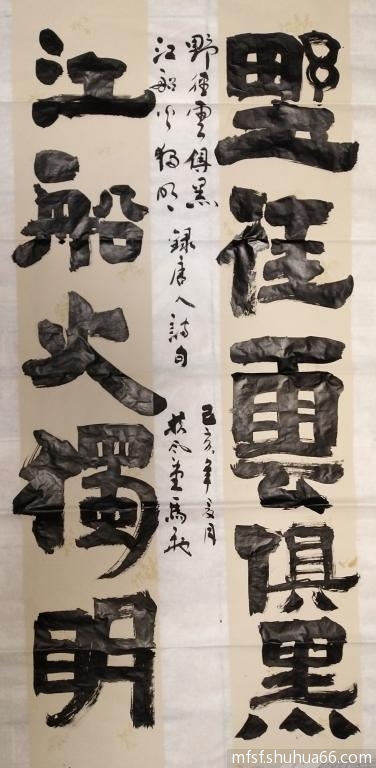 野徑雲俱黑
江船火獨明
野徑雲俱黑
江船火獨明 錄唐人詩句
己亥年夏月
堂馬
mfsf.shuhua66.com